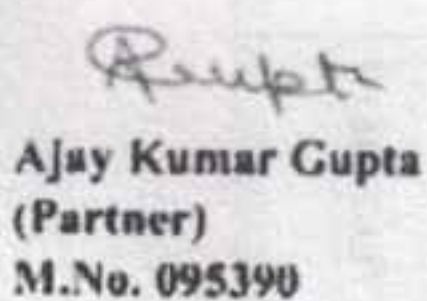 AGupta
Ajay Kumar Gupta
(Partner)
M.No. 095390